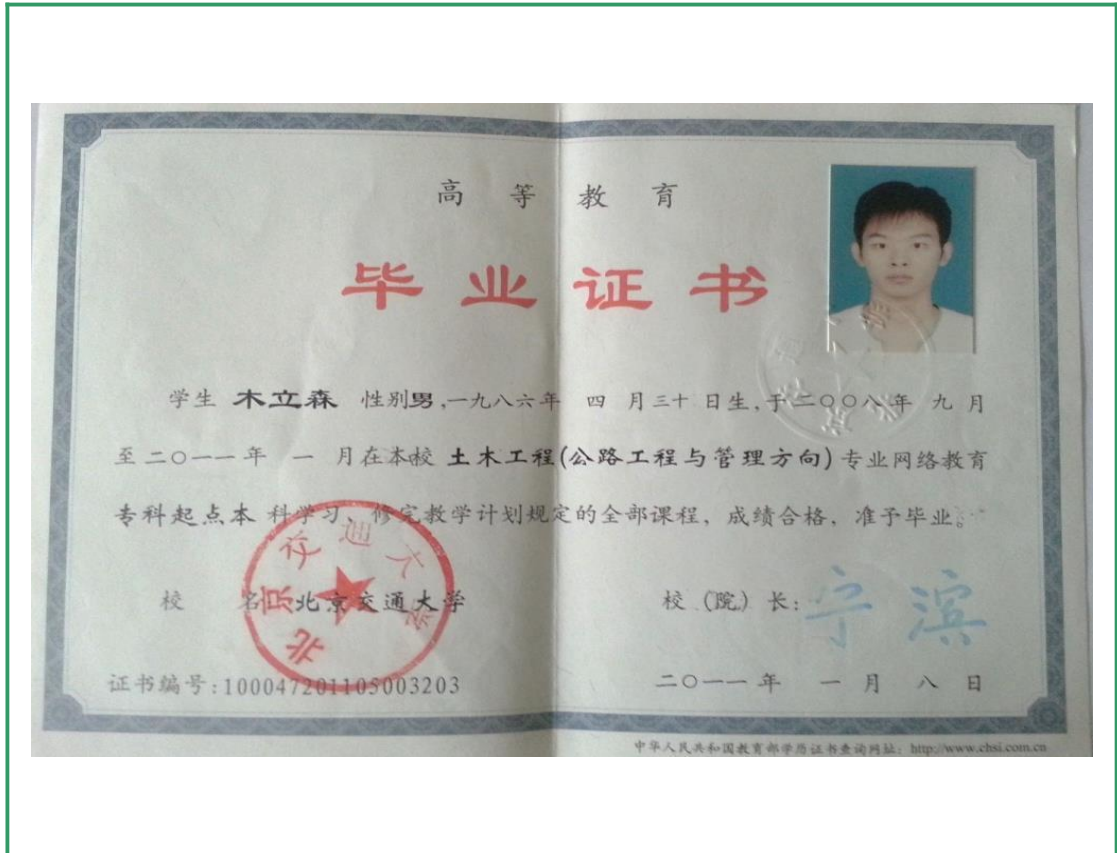 高等教育
毕业证书
学生 木立森 性别男,一九八六年 四 月三十日生,于二〇〇八年 九月
至二〇一一年 一 月在本校 土木工程(公路工程与管理方向) 专业网络教育
专科起点本 科学习,修完教学计划规定的全部课程,成绩合格,准予毕业。
北京交通大学
校 名:北京交通大学 校(院)长: 宁滨
证书编号:100047201105003203 二〇一一年 一月 八日
中华人民共和国教育部学历证书查询网址:http://www.chsi.com.cn